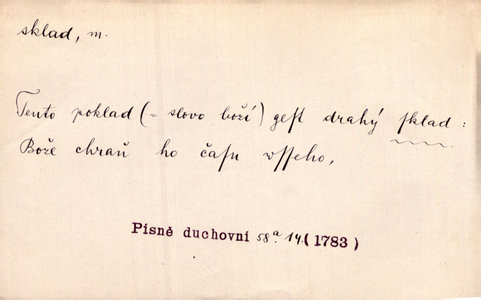 sklad, m.
Tento poklad (= slovo boží) gest drahý sklad:
Bože chraň ho času vsseho,
Písně duchovní 58a. 14. (1783)